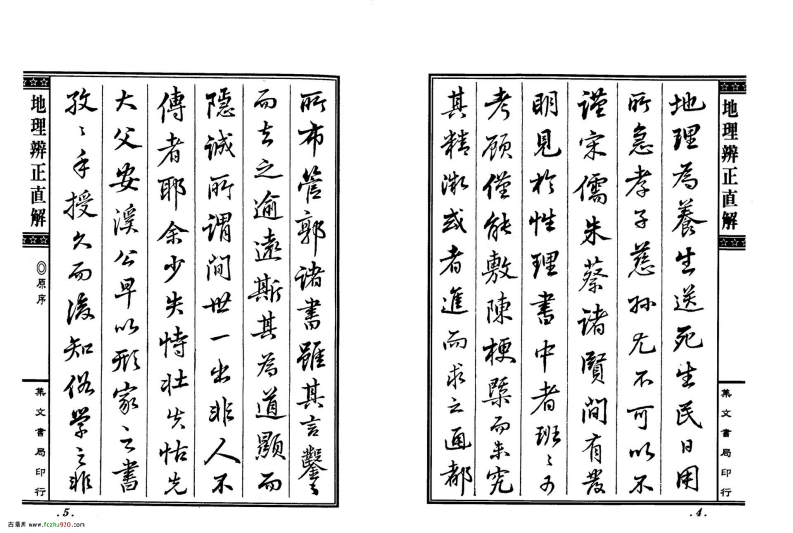 地理辨正直解
集文書局印行
.4.
地理為養生送死生民日用
所急孝子慈孫尤不可以不
謹宋儒朱蔡諸賢間有發
明見於性理書中者班〻可
考顧僅能敷陳梗槩而未究
其精微或者進而求之通都
所布管郭諸書雖其言鑿〻
而去之逾遠斯其為道顯而
隱誠所謂間世一出非人不
傳者耶余少失恃壯失怙先
大父安溪公早以形家之書
孜〻手授久而後知俗學之非
地理辨正直解
◎原序
集文書局印行
.5.
古籍库 www.fczhu920.com